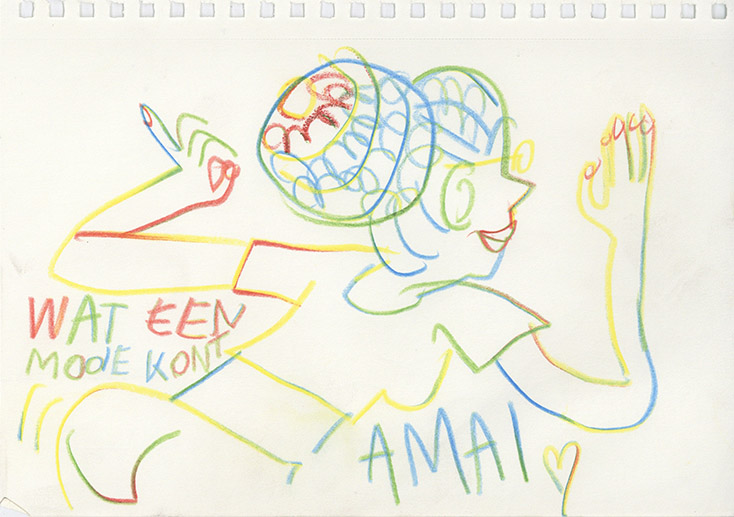 WAT EEN
MOOIE KONT
AMAI